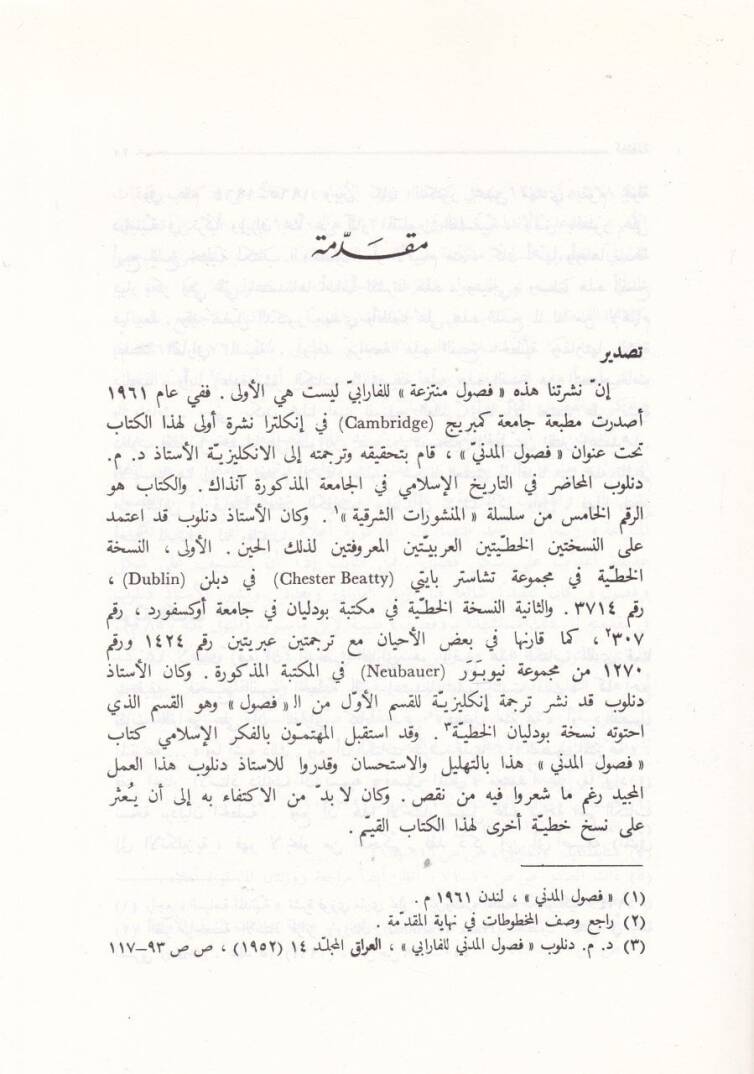 مقدّمة
تصدير
إنّ نشرتنا هذه « فصول منتزعة » للفارابيّ ليست هي الأولى . ففي عام ١٩٦١
أصدرت مطبعة جامعة كمبريج (Cambridge) في إنكلترا نشرة أولى لهذا الكتاب
تحت عنوان « فصول المدنيّ » ، قام بتحقيقه وترجمته إلى الانكليزيّة الأستاذ د. م.
دنلوب المحاضر في التاريخ الإسلامي في الجامعة المذكورة آنذاك . والكتاب هو
الرقم الخامس من سلسلة « المنشورات الشرقية »١ . وكان الأستاذ دنلوب قد اعتمد
على النسختين الخطّيتين العربيّتين المعروفتين لذلك الحين . الأولى ، النسخة
الخطّية في مجموعة تشاستر بايتي (Chester Beatty) في دبلن (Dublin) ،
رقم ٣٧١٤ . والثانية النسخة الخطّية في مكتبة بودليان في جامعة أوكسفورد ، رقم
٣٠٧٢ ، كما قارنها في بعض الأحيان مع ترجمتين عبريتين رقم ١٤٢٤ ورقم
١٢٧٠ من مجموعة نيوبَوَر (Neubauer) في المكتبة المذكورة . وكان الأستاذ
دنلوب قد نشر ترجمة إنكليزيّة للقسم الأوّل من الـ« فصول » وهو القسم الذي
احتوته نسخة بودليان الخطيّة٣ . وقد استقبل المهتمّون بالفكر الإسلامي كتاب
« فصول المدني » هذا بالتهليل والاستحسان وقدروا للاستاذ دنلوب هذا العمل
المجيد رغم ما شعروا فيه من نقص . وكان لا بدّ من الاكتفاء به إلى أن يُعثر
على نسخ خطيّة أخرى لهذا الكتاب القيّم .
(١) « فصول المدني » ، لندن ١٩٦١ م .
(٢) راجع وصف المخطوطات في نهاية المقدّمة .
(٣) د. م. دنلوب « فصول المدني للفارابي » ، العراق المجلّد ١٤ (١٩٥٢) ، ص ص ٩٣–١١٧